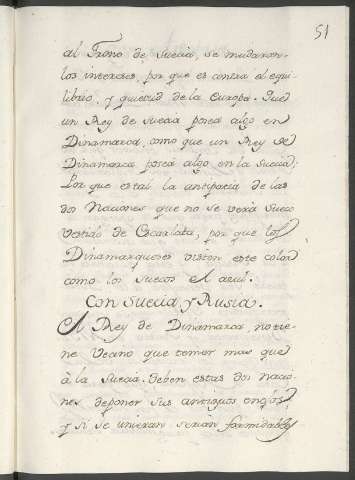 51
al Trono de Suecia, se mudaron
los intereses, por que es contra el equi-
librio, y quietud de la Europa. Que
un Rey de Suecia posea algo en
Dinamarca, como que un Rey de
Dinamarca posea algo en la Suecia;
Por que es tal la antipatia de las
dos Naciones que no se verà Sueco
vestido de Escarlata, por que los
Dinamarqueses visten este color
como los Suecos el azul.
Con Suecia, y Rusia.
El Rey de Dinamarca no tie-
ne Vecino que temer mas que
à la Suecia. Deben estas dos Nacio-
nes deponer sus antiguos enojos,
y si se unieran serian formidables